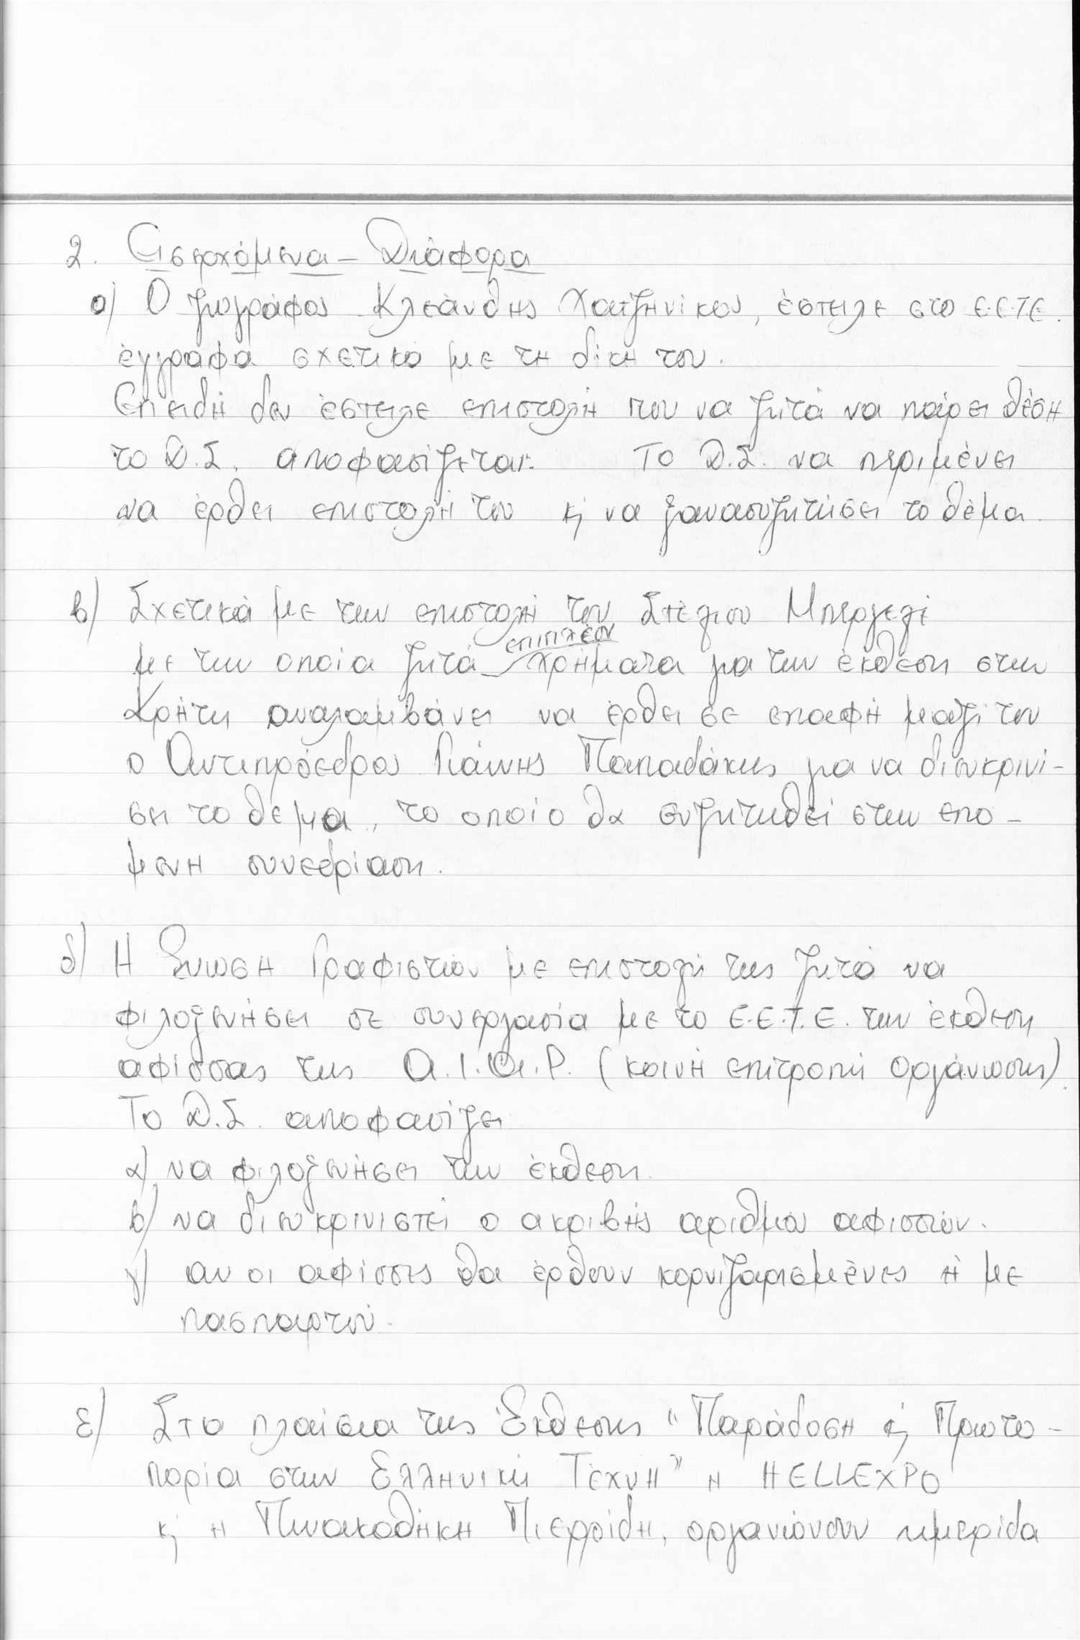 2. Εισερχόμενα - Διάφορα
α) Ο ζωγράφος Κλεάνθης Χατζηνίκου, έστειλε στο Ε.Ε.ΤΕ.
έγγραφα σχετικά με τη δίκη του.
Επειδή δεν έστειλε επιστολή που να ζητά να πάρει θέση
το Δ.Σ. αποφασίζεται. Το Δ.Σ. να περιμένει
να έρθει επιστολή του κ να ξανασυζητήσει το θέμα.
β) Σχετικά με την επιστολή του Στέλιου
επιπλέον
με την οποία ζητά χρήματα για την έκθεση στην
Κρήτη αναλαμβάνει να έρθει σε επαφή μαζί του
ο Αντιπρόεδρος Γιάννης Παπαδάκης για να διευκρινί-
σει το θέμα, το οποίο θα συζητηθεί στην επό-
μενη συνεδρίαση.
δ) Η Ένωση Γραφιστών με επιστολή της ζητά να
φιλοξενήσει σε συνεργασία με το Ε.Ε.Τ.Ε. την έκθεση
αφίσσας της (κοινή επιτροπή οργάνωσης).
Το Δ.Σ. αποφασίζει
α) να φιλοξενήσει την έκθεση.
β) να διευκρινιστεί ο ακριβής αριθμός αφισσών.
γ) αν οι αφίσσες θα έρθουν κορνιζαρισμένες ή με
πασπαρτού.
ε) Στα πλαίσια της Έκθεσης "Παράδοση κ Πρωτο-
πορία στην Ελληνική Τέχνη" η HELLEXPO
κ η Πινακοθήκη Πιερρίδη, οργανώνουν ημερίδα